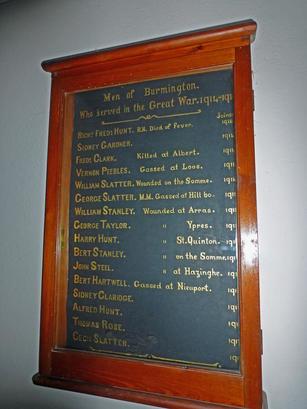 Men of Burmington.
Who served in the Great War. 1914-191
Joined
RICHD FREDK HUNT. R.N. Died of Fever. 191
SIDNEY GARDNER. 191
FREDK CLARK. Killed at Albert. 191
VERNON PEEBLES. Gassed at Loos. 191
WILLIAM SLATTER. Wounded on the Somme. 191
GEORGE SLATTER. M.M. Gassed of Hill 60. 191
WILLIAM STANLEY. Wounded at Arras. 191
GEORGE TAYLOR. " Ypres. 191
HARRY HUNT. " St. Quinton. 191
BERT STANLEY. " on the Somme. 191
JOHN STEEL. " at Hazinghe. 191
BERT HARTWELL. Gassed at Nieuport. 191
SIDNEY CLARIDGE. 191
ALFRED HUNT. 191
THOMAS ROSE. 191
CECIL SLATTER. 191